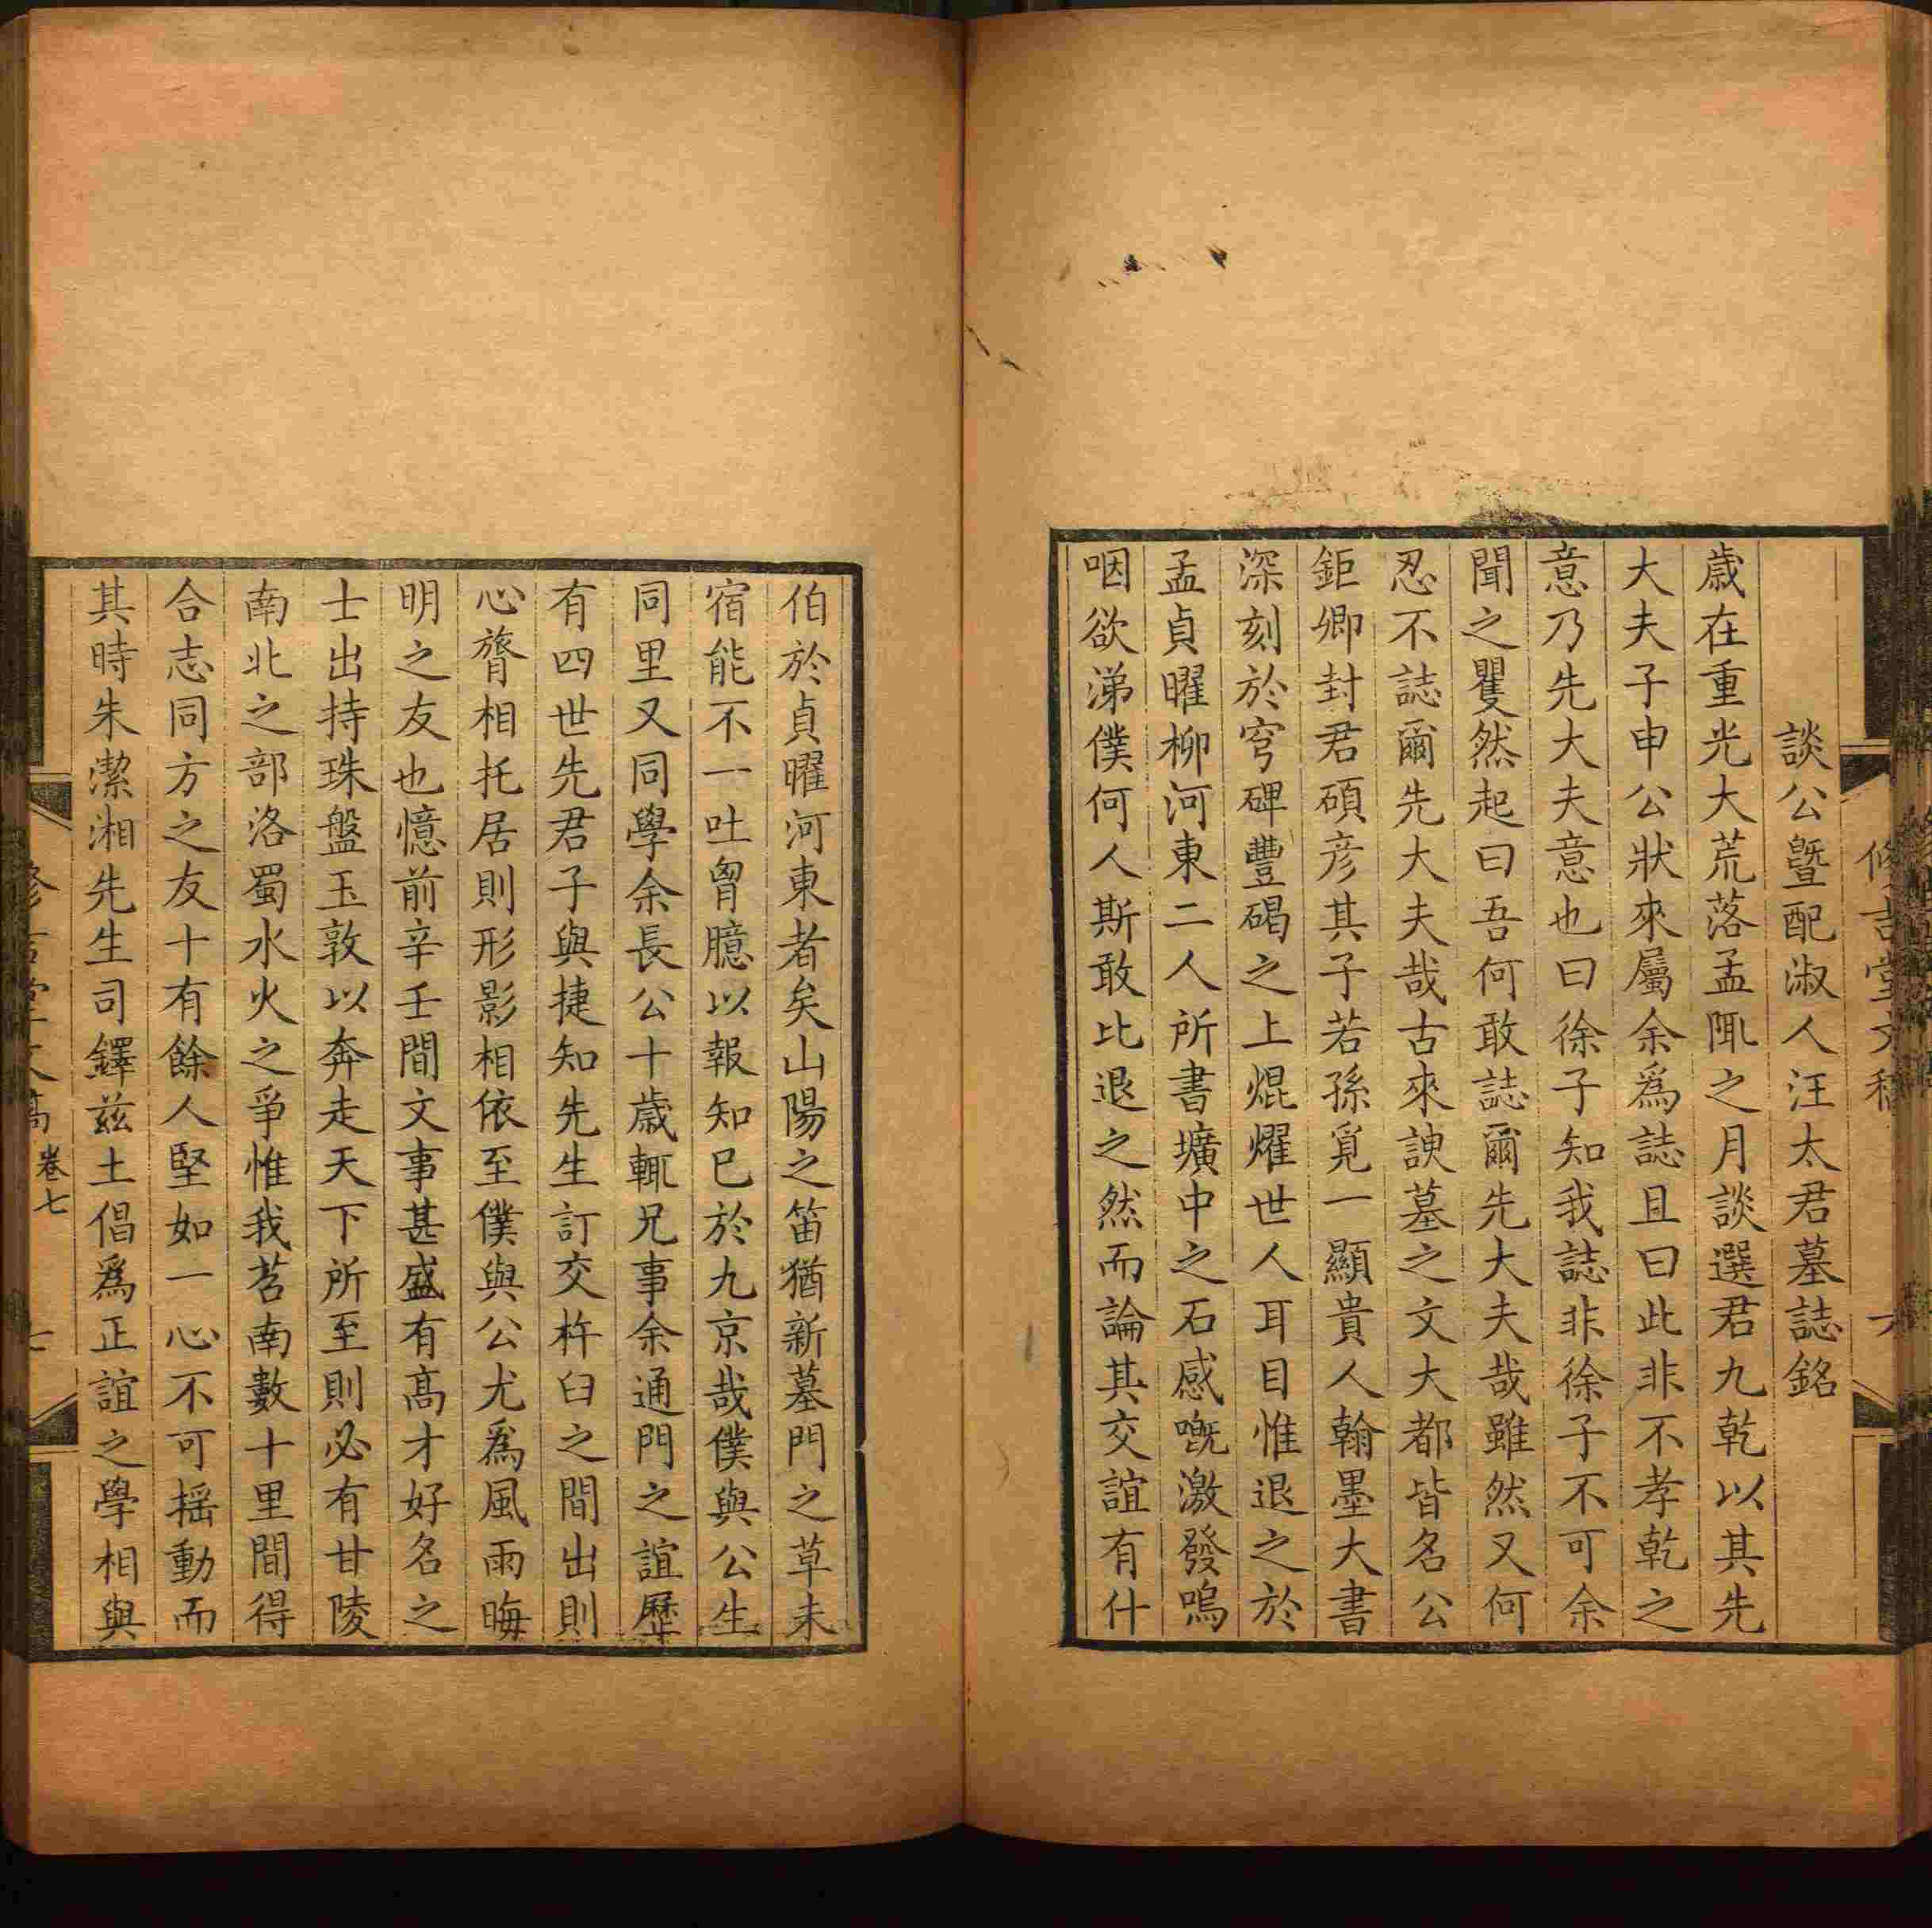 談公暨配淑人汪太君墓誌銘
歲在重光大荒落孟陬之月談選君九乾以其先
大夫子申公狀來屬余爲誌且曰此非不孝乾之
意乃先大夫意也曰徐子知我誌非徐子不可余
聞之瞿然起曰吾何敢誌爾先大夫哉雖然又何
忍不誌爾先大夫哉古來諛墓之文大都皆名公
鉅卿封君碩彥其子若孫覓一顯貴人翰墨大書
深刻於穹碑豐碣之上焜燿世人耳目惟退之於
孟貞曜柳河東二人所書壙中之石感嘅激發嗚
咽欲涕僕何人斯敢比退之然而論其交誼有什
伯於貞曜河東者矣山陽之笛猶新墓門之草未
宿能不一吐胷臆以報知已於九京哉僕與公生
同里又同學余長公十歲輒兄事余通門之誼歷
有四世先君子與捷知先生訂交杵臼之間出則
心膂相托居則形影相依至僕與公尤爲風雨晦
明之友也憶前辛壬間文事甚盛有高才好名之
士出持珠盤玉敦以奔走天下所至則必有甘陵
南北之部洛蜀水火之爭惟我苕南數十里間得
合志同方之友十有餘人堅如一心不可搖動而
其時朱潔湘先生司鐸兹土倡爲正誼之學相與
卷七